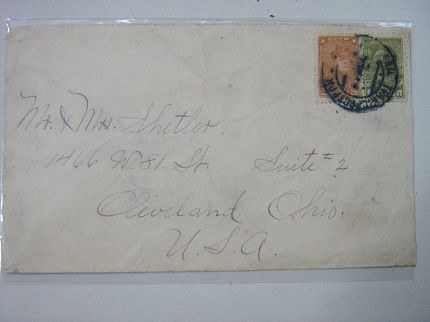 Mr. & Mrs. Shetler.
1466 W. 81. St. Suite #2
Cleveland Ohio.
U.S.A.